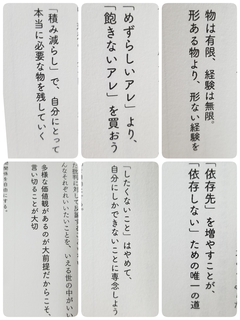 「積み減らし」で、自分にとって
本当に必要な物を残していく
「めずらしいアレ」より、
「飽きないアレ」を買おう
物は有限、経験は無限。
形ある物より、形ない経験を
んなそれぞれいいたいことを、いえる世の中がい
多様な価値観があるのが大前提だからこそ、
言い切ることが大切
「したくないこと」はやめて、
自分にしかできないことに専念しよう
「依存先」を増やすことが、
「依存しない」ための唯一の道